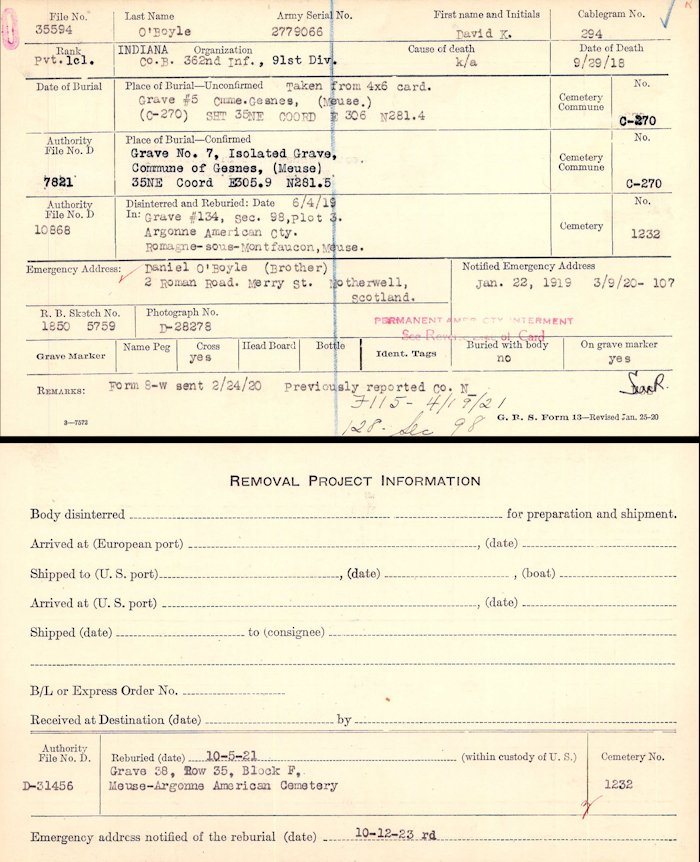 File No. Last Name Army Serial No. First name and Initials Cablegram No.
35594 O'Boyle 2779066 David K. 294
Rank INDIANA Organization Cause of death Date of Death
Pvt.1cl. Co.B. 362nd Inf., 91st Div. k/a 9/29/18
Date of Burial Place of Burial—Unconfirmed Taken from 4x6 card. No.
Grave #5 Cmme.Gesnes, (Meuse.) Cemetery
(C-270) SHT 35NE COORD E 306 N281.4 Commune C-270
Authority Place of Burial—Confirmed No.
File No. D Grave No. 7, Isolated Grave, Cemetery
Commune of Gesnes, (Meuse) Commune
7821 35NE Coord E305.9 N281.5 C-270
Authority Disinterred and Reburied: Date 6/4/19 No.
File No. D In: Grave #134, Sec. 98, plot 3.
10868 Argonne American Cty. Cemetery 1232
Romagne-sous-Montfaucon, Meuse.
Emergency Address: Daniel O'Boyle (Brother) Notified Emergency Address
2 Roman Road. Merry St. Motherwell, Jan. 22, 1919 3/9/20- 107
Scotland.
R. B. Sketch No. Photograph No.
1850 5759 D-28278
PERMANENT AMER CTY INTERMENT
See Reverse of Card
Grave Marker Name Peg Cross Head Board Bottle Ident. Tags Buried with body On grave marker
yes no yes
REMARKS: Form 8-W sent 2/24/20 Previously reported Co. N
F115- 4/19/21
128- Sec 98
3—7572 G. R. S. Form 13—Revised Jan. 25-20
REMOVAL PROJECT INFORMATION
Body disinterred for preparation and shipment.
Arrived at (European port) , (date)
Shipped to (U. S. port) , (date) , (boat)
Arrived at (U. S. port) , (date)
Shipped (date) to (consignee)
B/L or Express Order No.
Received at Destination (date) by
Authority
File No. D. Reburied (date) 10-5-21 (within custody of U. S.) Cemetery No.
Grave 38, Row 35, Block F,
D-31456 Meuse-Argonne American Cemetery 1232
Emergency address notified of the reburial (date) 10-12-23 rd